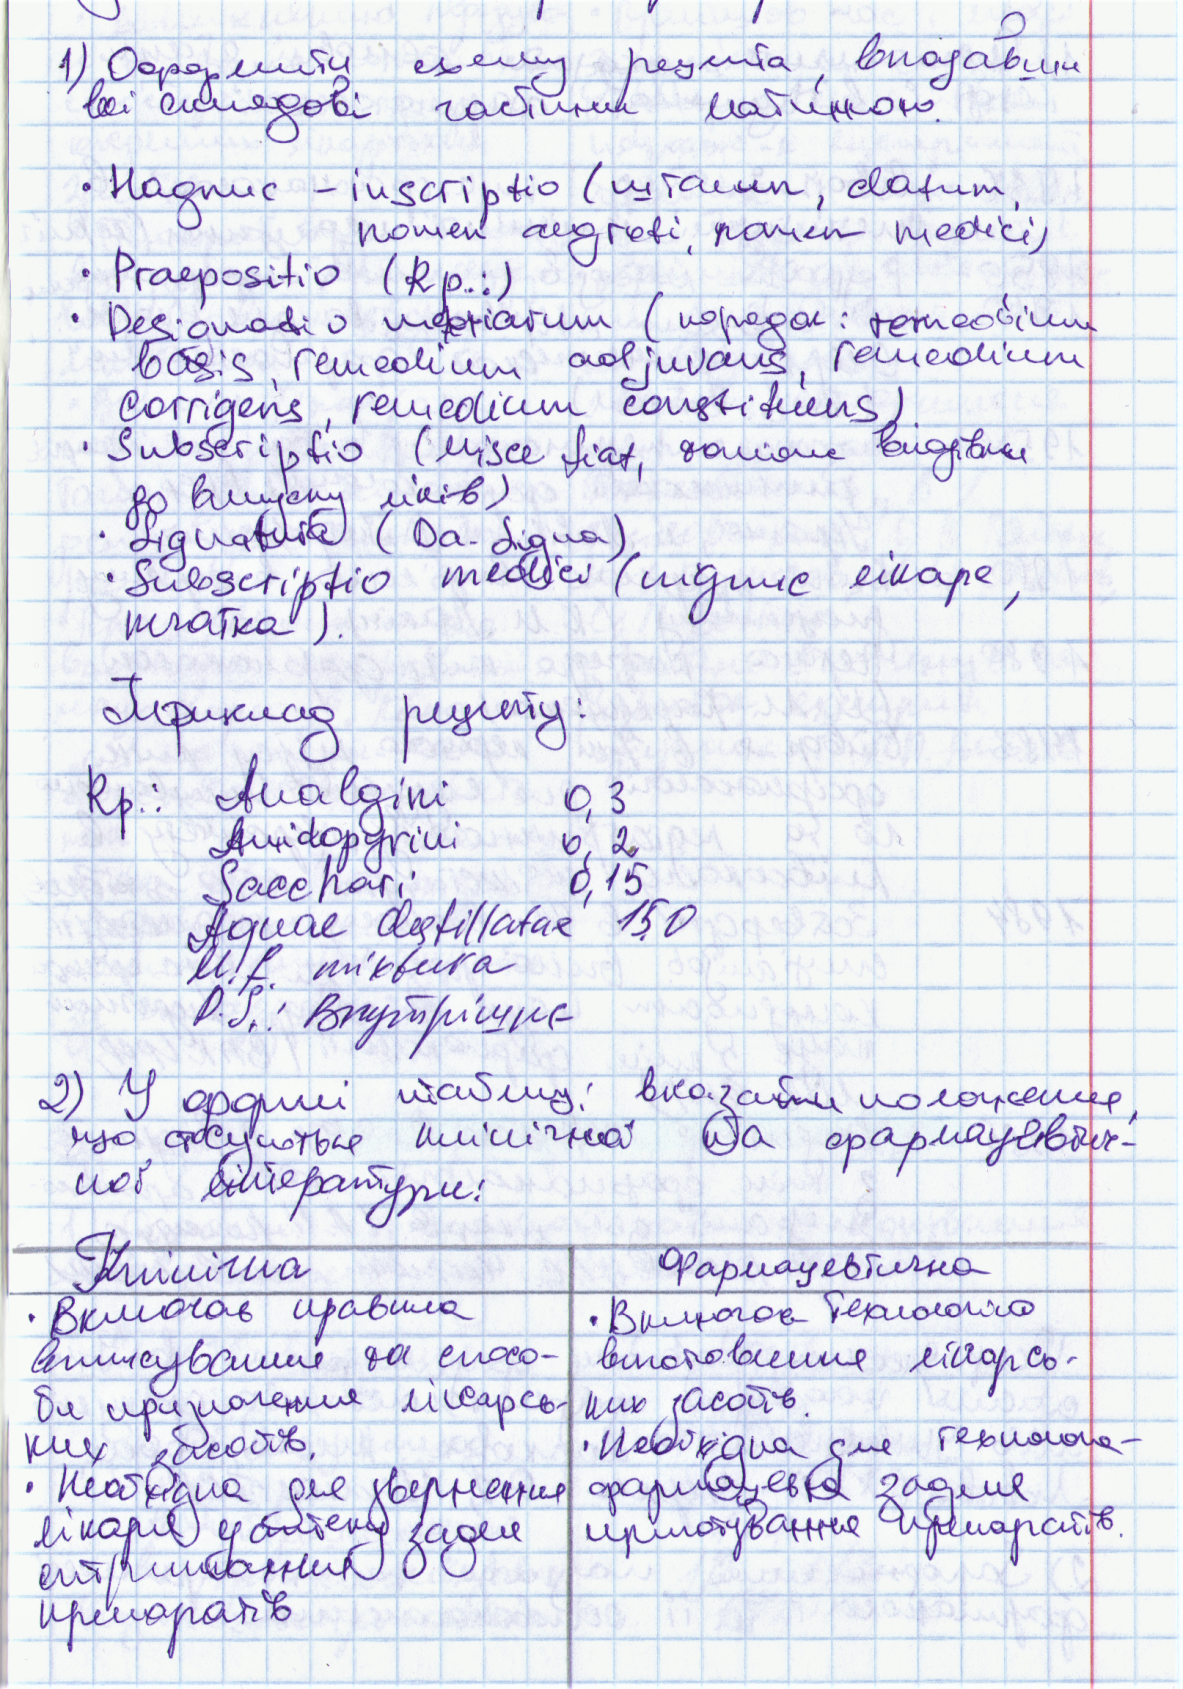 1) Оформити схему рецепта, вподавши
всі складові частини латинною.
· Надпис – inscriptio (штамп, datum,
nomen aegroti, nomen medici)
· Praepositio (Rp.:)
· Designatio materiarum (порядок: remedium
basis, remedium adjuvans, remedium
corrigens, remedium constituens)
· Subscriptio (Misce fiat, також вказівки
до випуску ліків)
· Signatura (Da. Signa)
· Subscriptio medici (підпис лікаря,
печатка).
Приклад рецепту:
Rp.: Analgini 0,3
Amidopyrini 0,2
Sacchari 0,15
Aquae destillatae 15,0
M.f. mixtura
D.S.: Внутрішнє
2) У формі таблиці вказати положення,
що стосуються клінічної та фармацевтич-
ної літератури:
Клінічна Фармацевтична
· Включає правила
виписування та спосо-
би призначення лікарсь-
ких засобів.
· Необхідна для звернення
лікаря у аптеку задля
отримання
препаратів
· Включає технологію
виготовлення лікарсь-
ких засобів.
· Необхідна для технолога-
фармацевта задля
приготування препаратів.